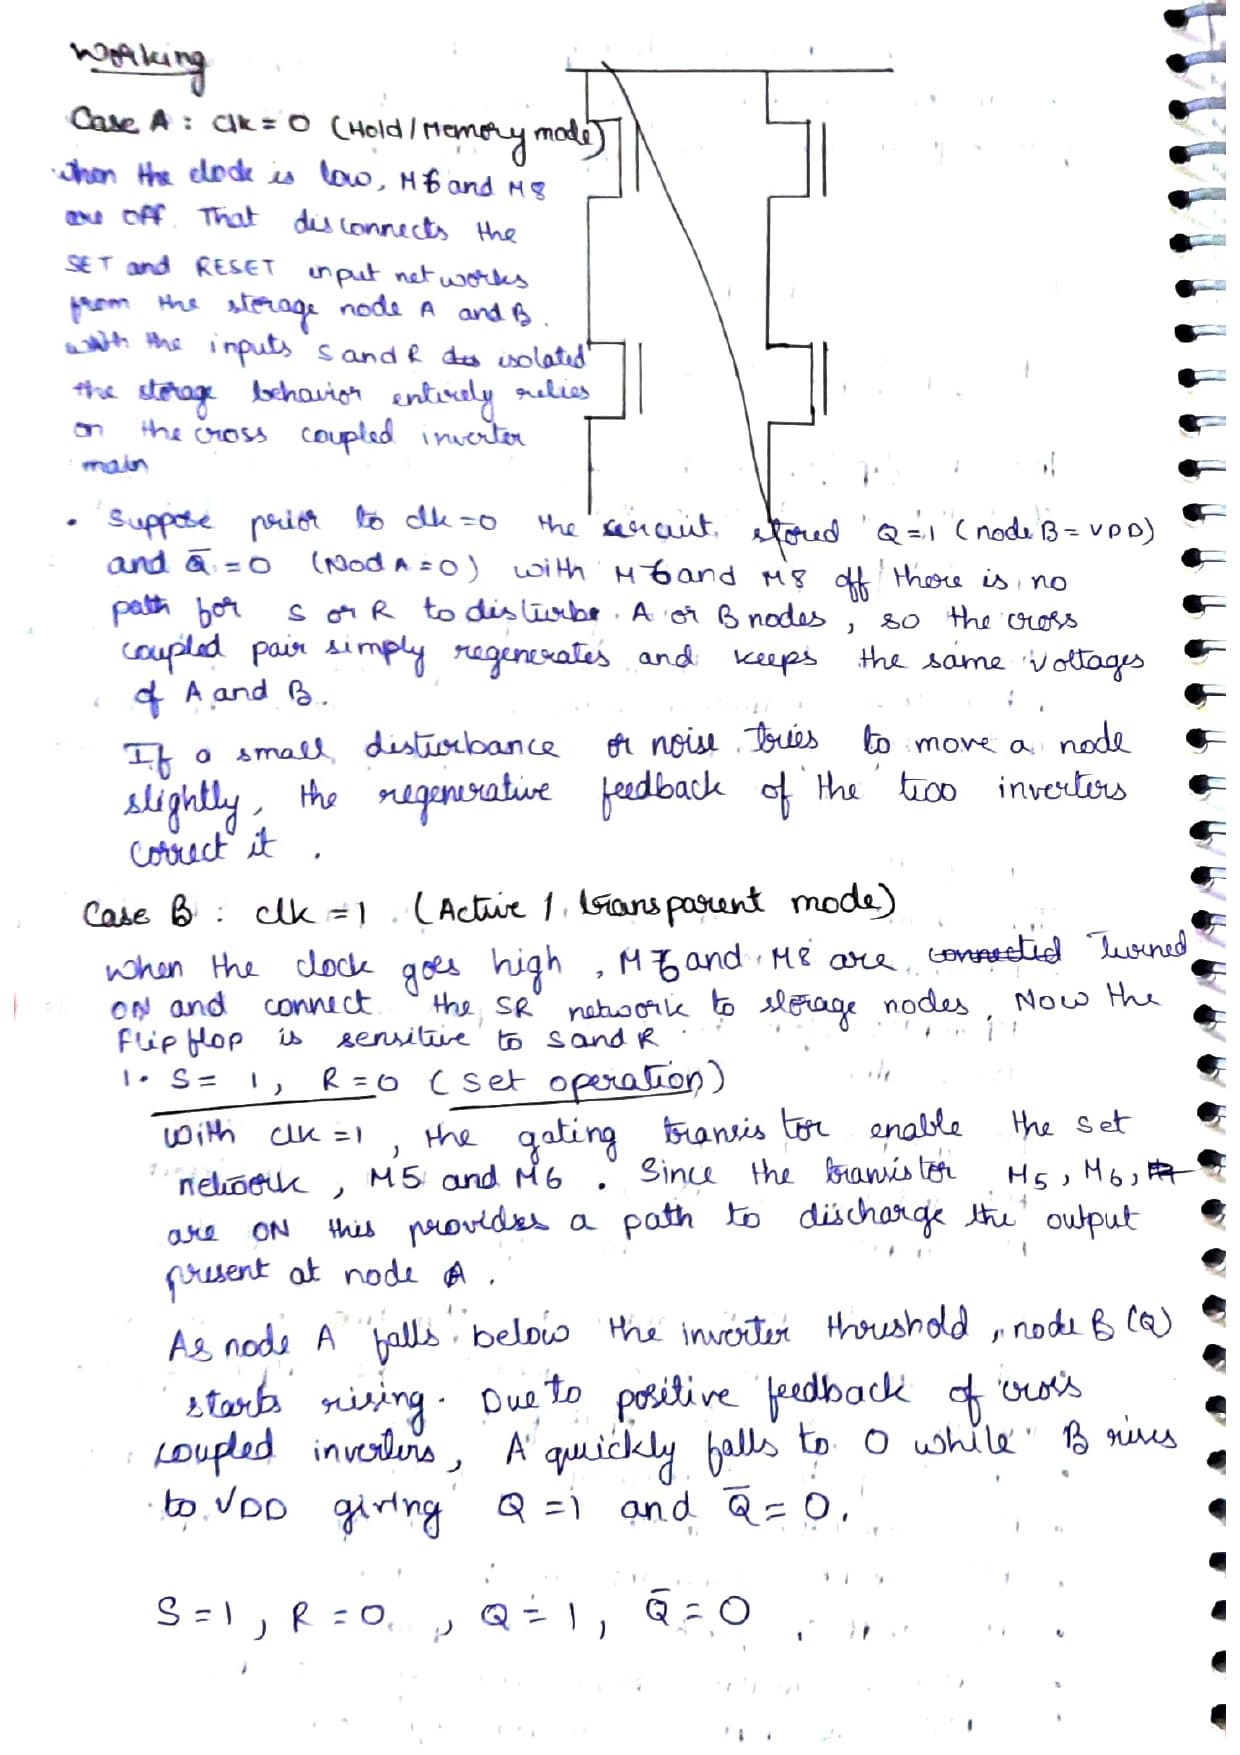 Working
Case A : clk = 0 (Hold / Memory mode)
When the clock is low, M6 and M8
are off. That disconnects the
SET and RESET input networks
from the storage node A and B.
with the inputs S and R isolated
the storage behavior entirely relies
on the cross coupled inverter
main
• Suppose prior to clk=0 the circuit stored Q=1 (node B = VDD)
and Q̄ = 0 (Nod A = 0) with M6 and M8 off there is no
path for S or R to disturbe A or B nodes, so the cross
coupled pair simply regenerates and keeps the same voltages
of A and B.
If a small disturbance or noise tries to move a node
slightly, the regenerative feedback of the two inverters
correct it .
Case B : clk = 1 (Active / transparent mode)
When the clock goes high, M6 and M8 are connected Turned
ON and connect the SR network to storage nodes. Now the
flip flop is sensitive to S and R
1. S = 1, R = 0 (set operation)
With clk = 1, the gating transistor enable the set
network, M5 and M6. Since the transistor M5, M6,
are ON this provides a path to discharge the output
present at node A.
As node A falls below the inverter threshold, node B (Q)
starts rising. Due to positive feedback of cross
coupled inverters, A quickly falls to 0 while B rises
to VDD giving Q = 1 and Q̄ = 0.
S = 1, R = 0, Q = 1, Q̄ = 0